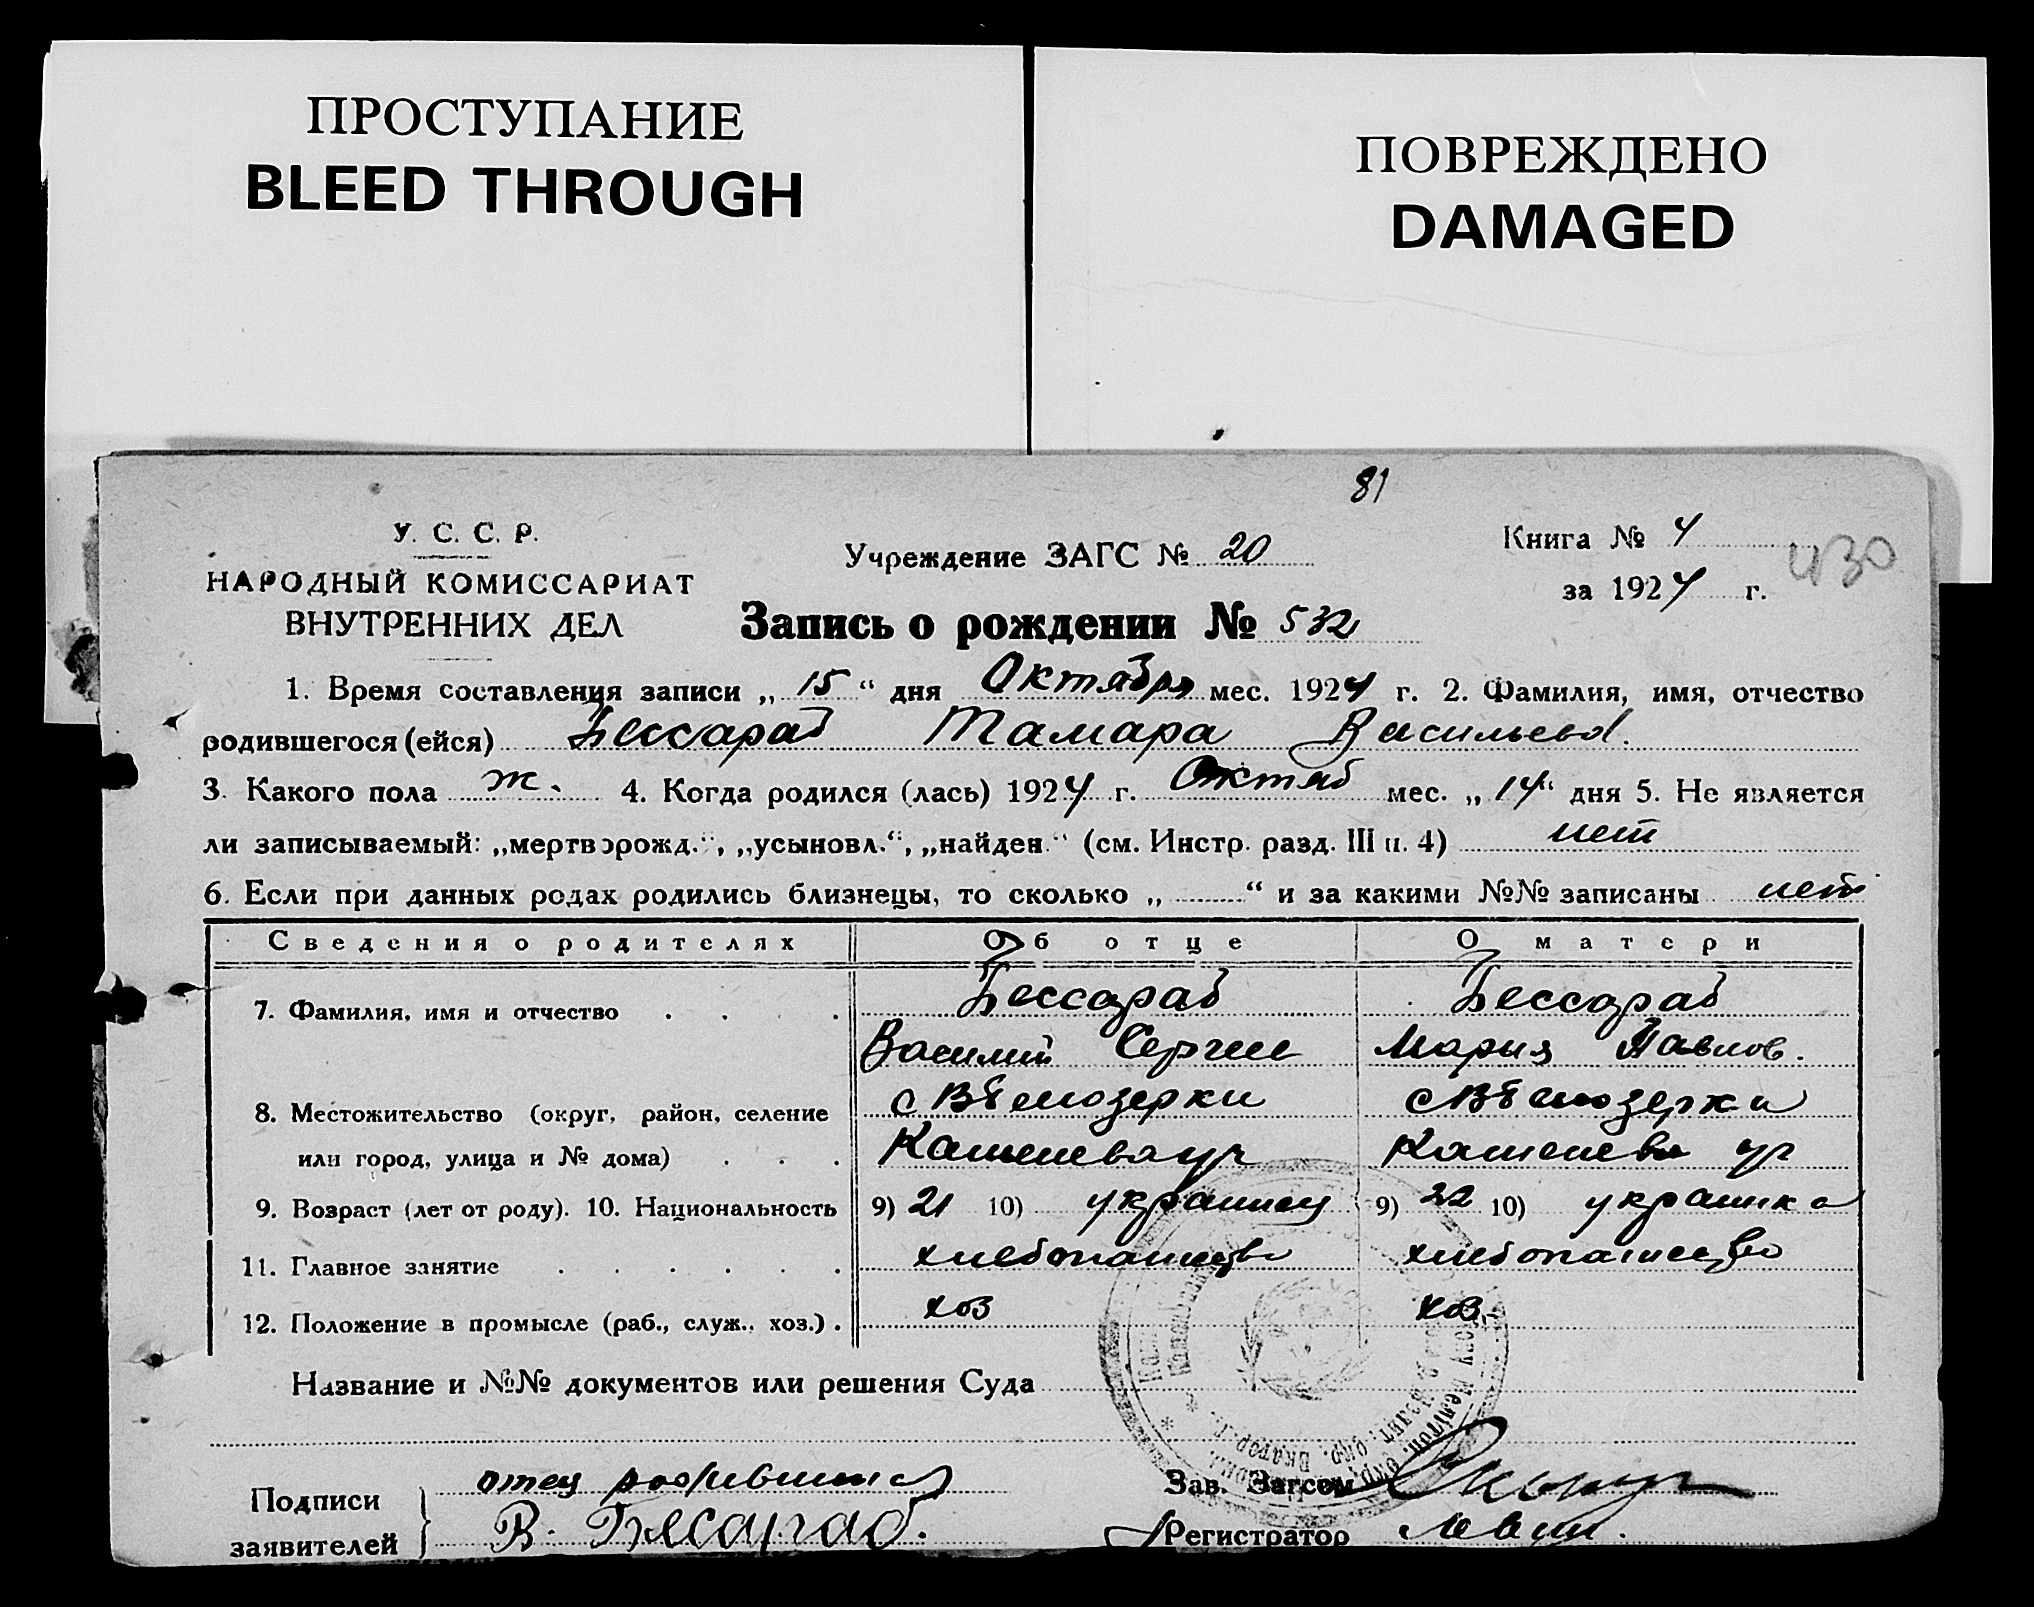 ПРОСТУПАНИЕ
BLEED THROUGH
ПОВРЕЖДЕНО
DAMAGED
81
У. С. С. Р.
НАРОДНЫЙ КОМИССАРИАТ
ВНУТРЕННИХ ДЕЛ
Учреждение ЗАГС № 20
Книга № 4
за 1924 г.
430
Запись о рождении № 532
1. Время составления записи „ 15 “ дня Октября мес. 1924 г. 2. Фамилия, имя, отчество
родившегося (ейся) Бессараб Тамара Васильевн.
3. Какого пола ж. 4. Когда родился (лась) 1924 г. Октяб мес. „ 14 “ дня 5. Не является
ли записываемый: „мертворожд.“, „усыновл.“, „найден.“ (см. Инстр. разд. III п. 4) нет
6. Если при данных родах родились близнецы, то сколько „ “ и за какими №№ записаны нет
Сведения о родителях Об отце О матери
7. Фамилия, имя и отчество Бессараб Бессараб
Василий Сергее Мария Павлов.
8. Местожительство (округ, район, селение с Белозерки с Белозерки
или город, улица и № дома)
9. Возраст (лет от роду). 10. Национальность 9) 21 10) украинец 9) 22 10) украинка
11. Главное занятие хлебопашество хлебопашество
12. Положение в промысле (раб., служ., хоз.) хоз хоз.
Название и №№ документов или решения Суда
Подписи
заявителей
отец
В. Бесараб.
Зав. Загсом
Регистратор Левин.